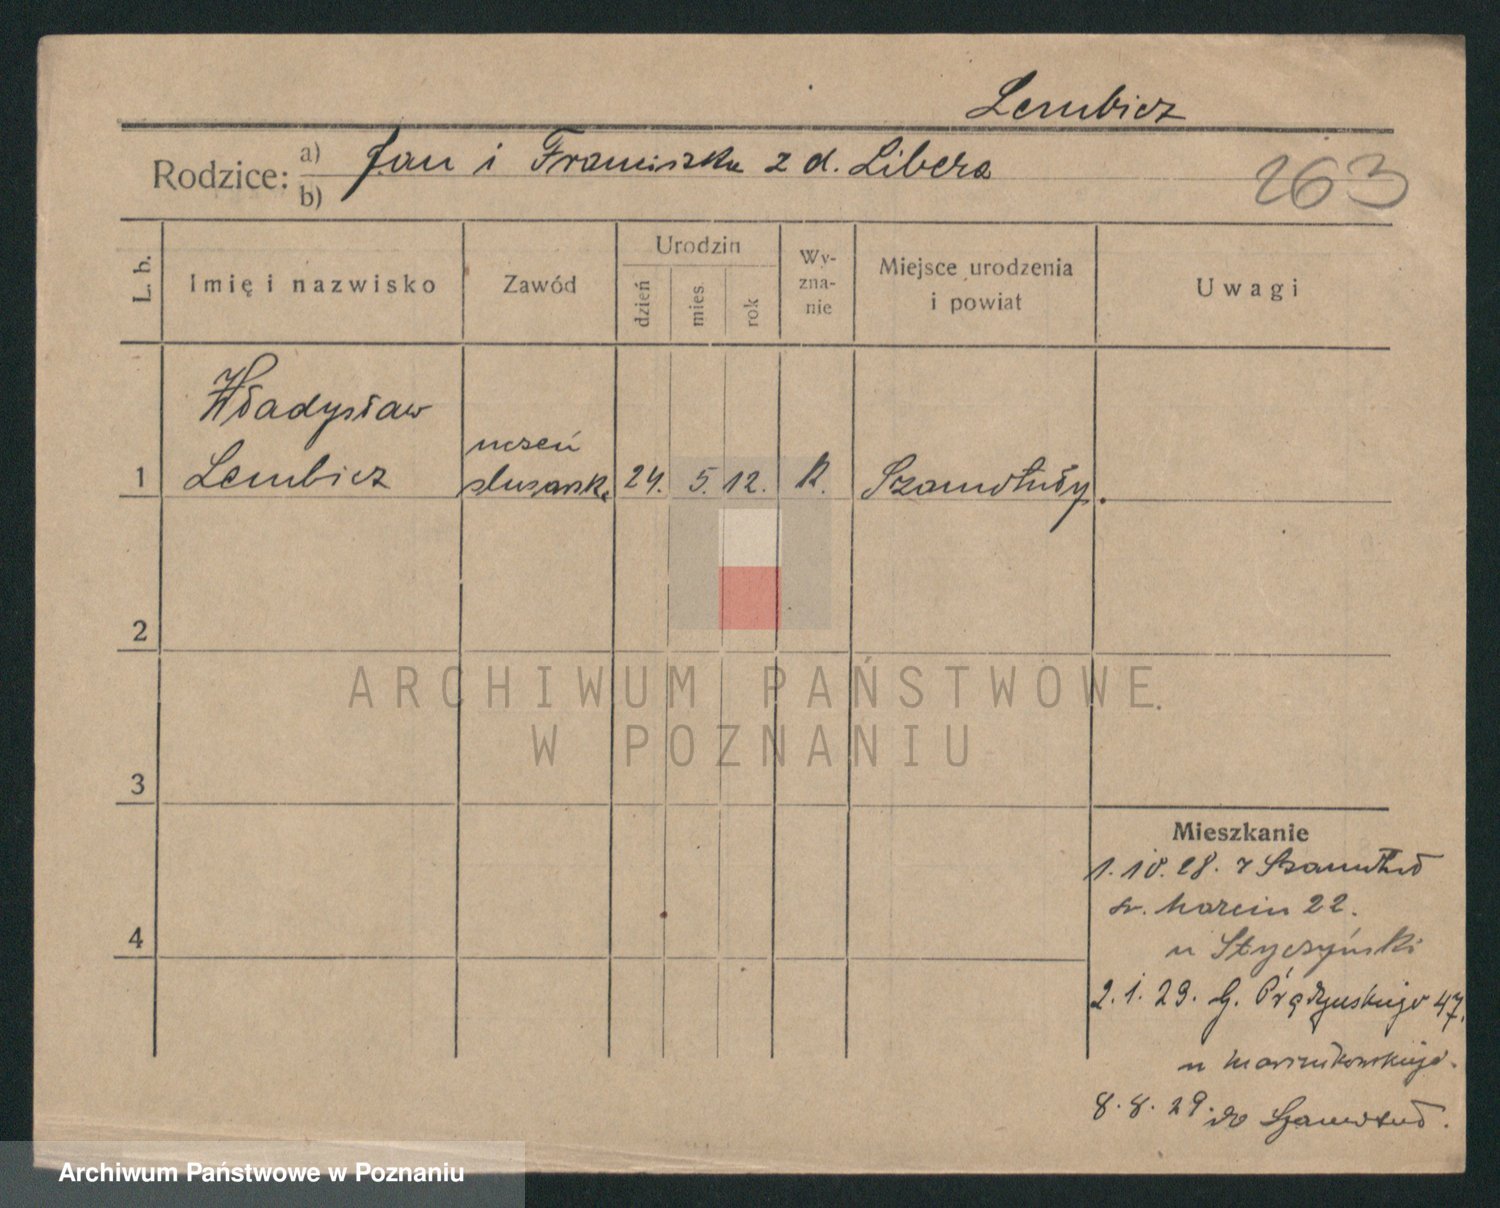 Lembicz
Rodzice: a) Jan i Franciszka z d. Libera
b)
263
L. b.
Imię i nazwisko
Zawód
Urodzin
dzień
mies.
rok
Wy-
zna-
nie
Miejsce urodzenia
i powiat
Uwagi
Władysław
uczeń
1 Lembicz ślusarsk. 24. 5. 12. R. Szamotuły.
2
3
4
ARCHIWUM PAŃSTWOWE
W POZNANIU
Mieszkanie
1. 10. 28. z Szamotuł
św. Marcin 22.
u Styczyński
2. 1. 29. G. Prądzyńskiego 47.
u Marcinkowskiego.
8. 8. 29. do Szamotuł.
Archiwum Państwowe w Poznaniu